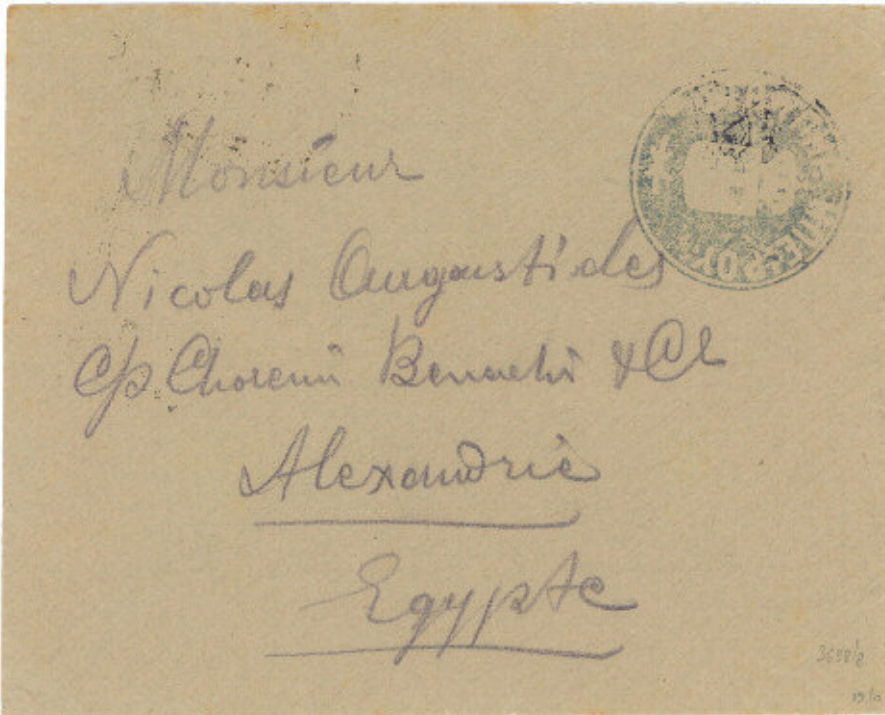 Monsieur
Nicolas Augustides
C/o Choremi Benachi & Cie
Alexandrie
Egypte